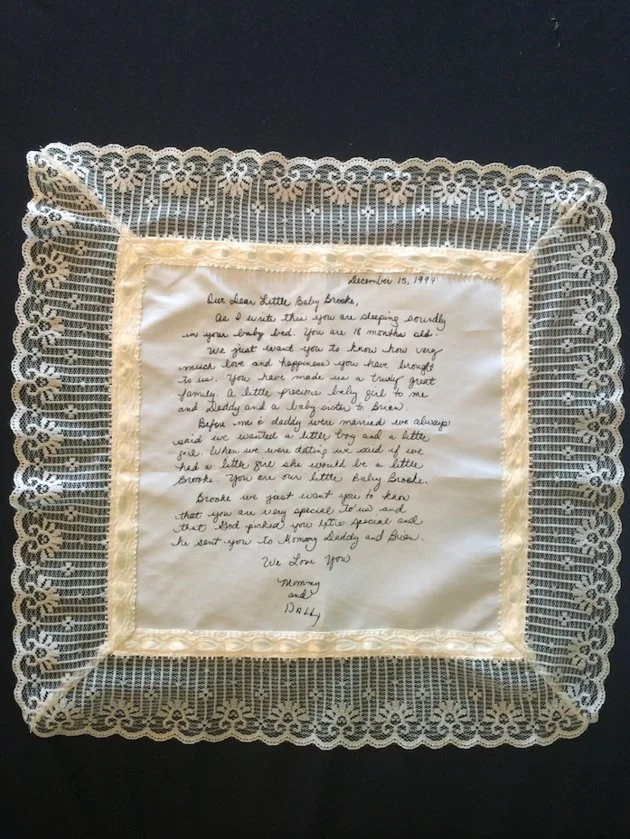 December 15, 1994
Our Dear Little Baby Brooke,
As I write this you are sleeping soundly
in your baby bed. You are 18 months old.
We just want you to know how very
much love and happiness you have brought
to us. You have made us a truly great
family. A little precious baby girl to me
and Daddy and a baby sister to Brian.
Before me & daddy were married we always
said we wanted a little boy and a little
girl. When we were dating we said if we
had a little girl she would be a little
Brooke. You are our little Baby Brooke.
Brooke we just want you to know
that you are very special to us and
that God picked you extra special and
he sent you to Mommy Daddy and Brian.
We Love You
Mommy
and
Daddy